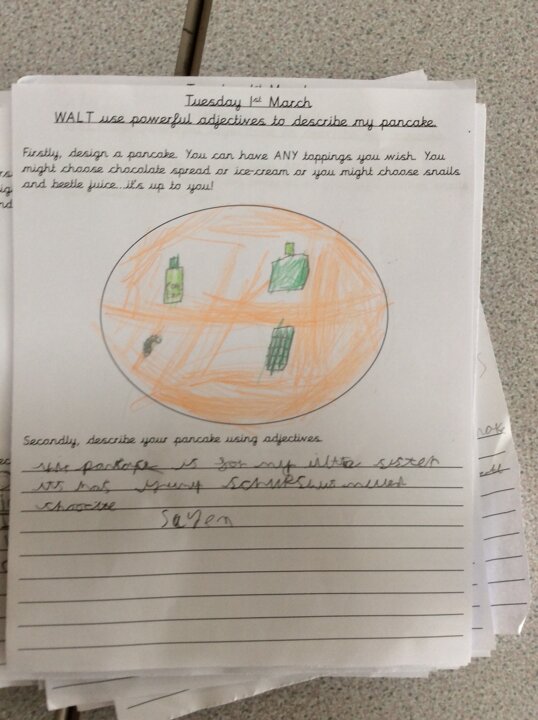 Tuesday 1st March
WALT use powerful adjectives to describe my pancake.
Firstly, design a pancake. You can have ANY toppings you wish. You
might choose chocolate spread or ice-cream or you might choose snails
and beetle juice...it's up to you!
Secondly, describe your pancake using adjectives
is for my sister
its